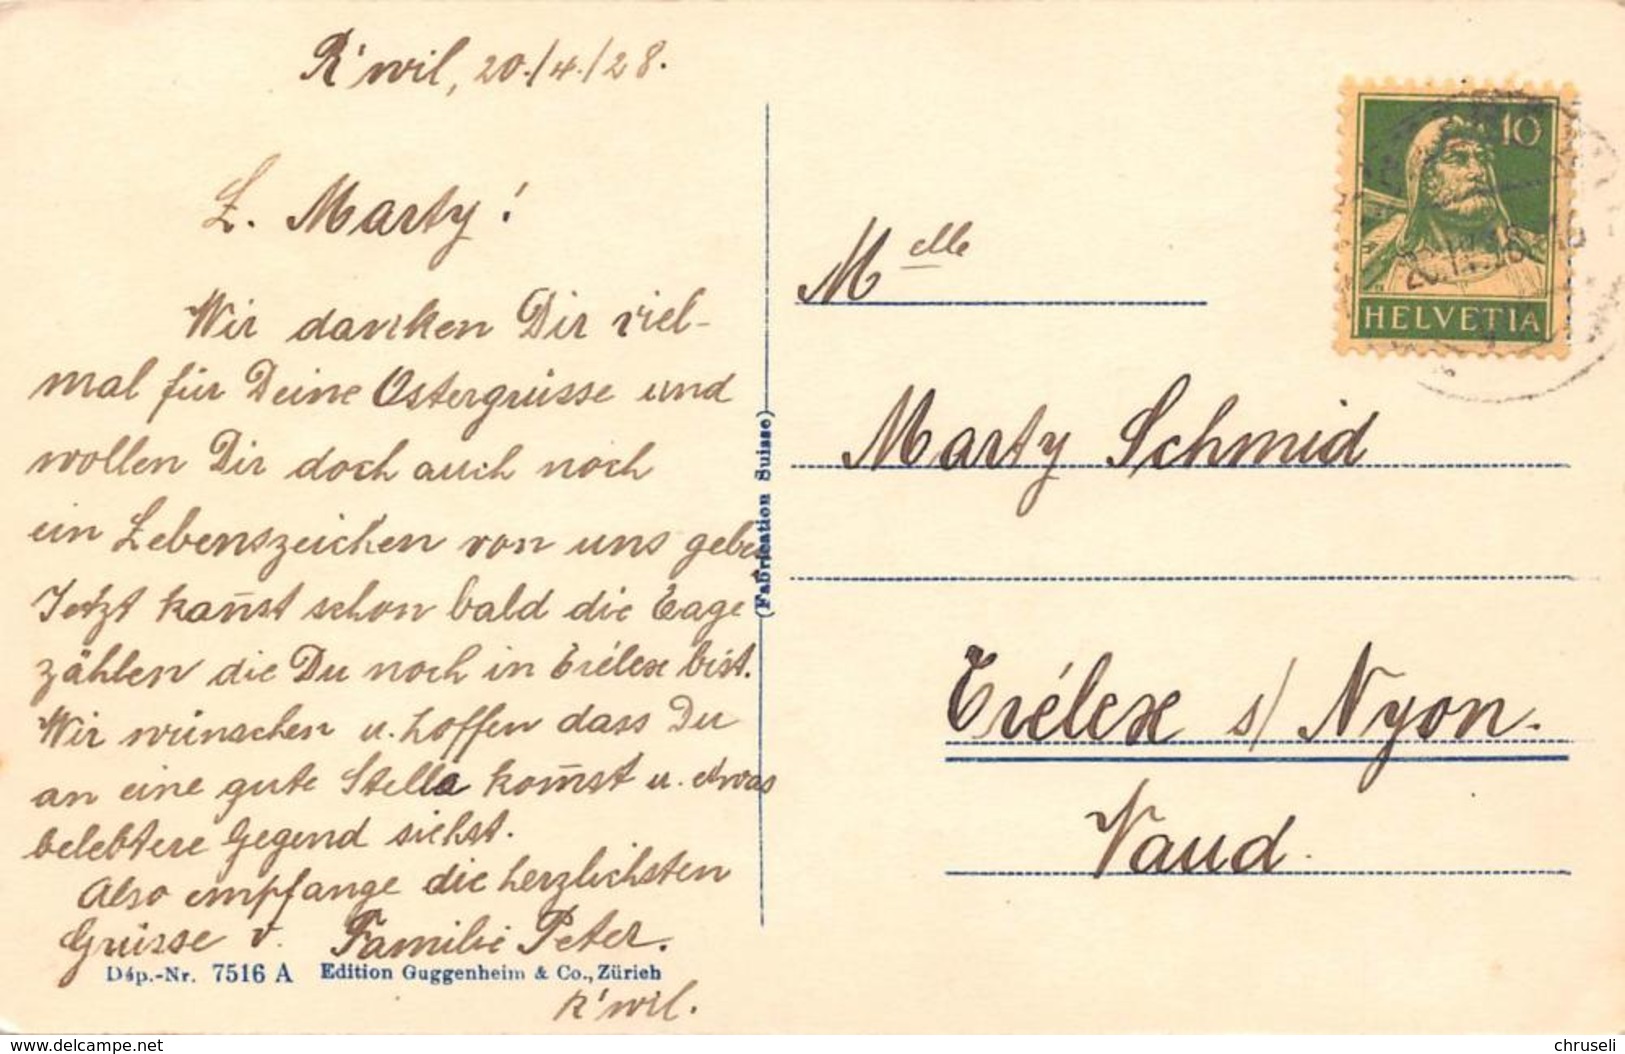 R'wil, 20./4./28.
L. Marty!
Wir danken Dir viel-
mal für Deine Ostergrüsse und
wollen Dir doch auch noch
ein Lebenszeichen von uns geben
Jetzt kan̄st schon bald die Tage
zählen die Du noch in Trélex bist.
Wir wünschen u. hoffen dass Du
an eine gute Stelle kom̄st u. etwas
belebtere Gegend siehst.
Also empfange die herzlichsten
Grüsse v. Familie Peter.
R'wil.
Dép.-Nr. 7516 A Edition Guggenheim & Co., Zürich
(Fabrication Suisse)
10
HELVETIA
Melle
Marty Schmid
Trélex s/ Nyon.
Vaud.
www.delcampe.net
chruseli